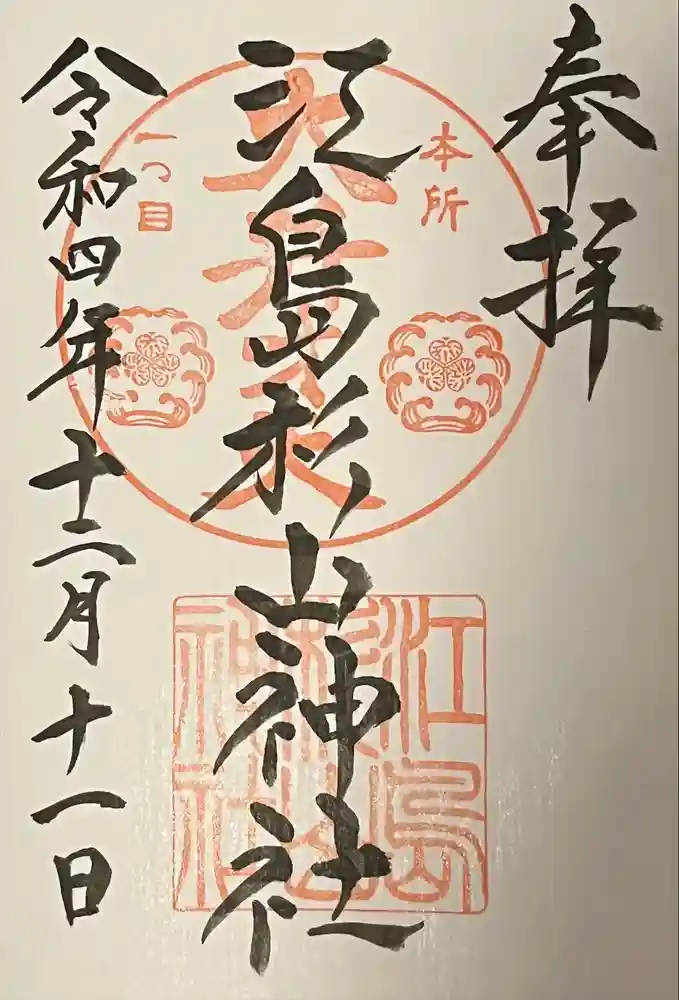 奉拝
本所
一つ目
江島杉山神社
江島
杉山
神社
令和四年十二月十一日